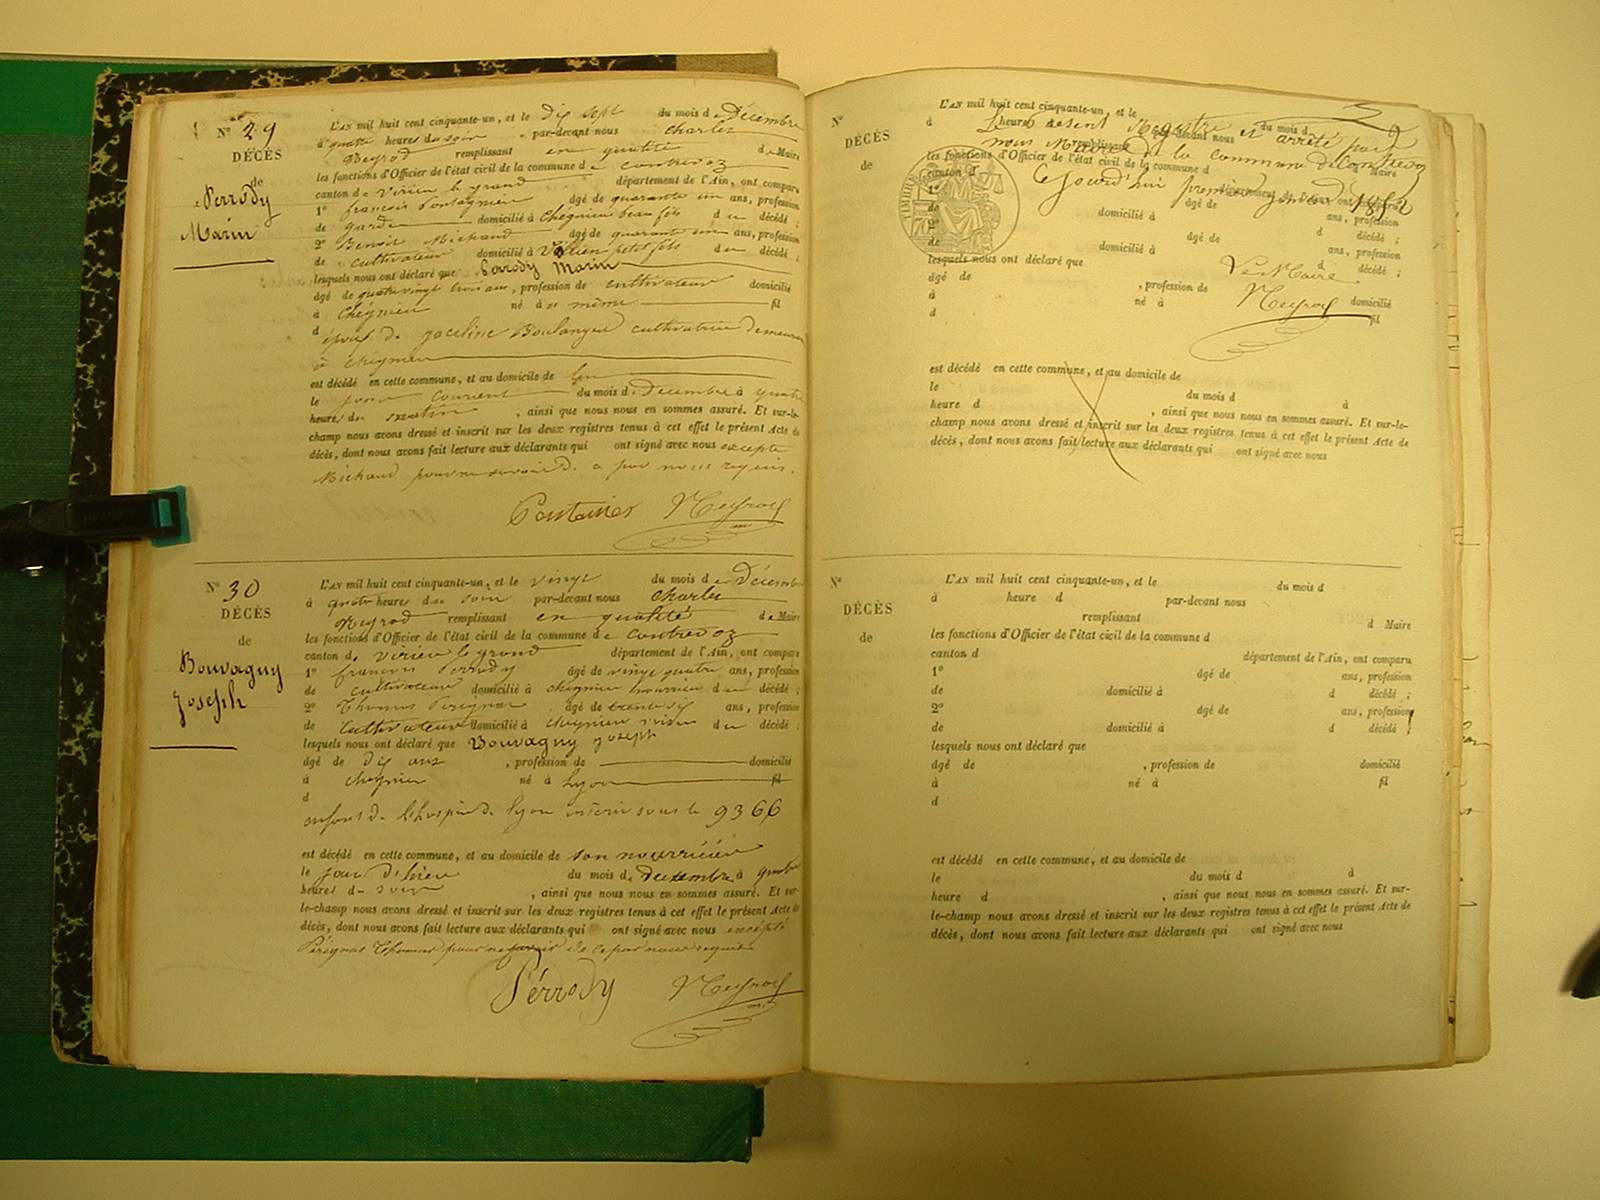 N° 29
DÉCÈS
de
Perrody
Marin
L'AN mil huit cent cinquante-un, et le dix sept du mois d e Décembre
à quatre heures du soir par-devant nous Charles
Neyrod remplissant en qualité d e Maire
les fonctions d'Officier de l'état civil de la commune d e Contrevoz
canton de Virieu le grand département de l'Ain, ont comparu
1° françois âgé de quarante un ans, profession
de garde domicilié à Chégnieu beau fils d u décédé ;
2° Benoit Michaud âgé de quarante ans, profession
de cultivateur domicilié à petit fils d u décédé ;
lesquels nous ont déclaré que Perrody Marin
âgé de quatre vingt trois ans, profession de cultivateur domicilié
à Chégnieu né à même fil
d époux de Boulanger cultivatrice
à chégnieu
est décédé en cette commune, et au domicile de lui
le jour courant du mois d e Décembre à quatre
heures du matin, ainsi que nous nous en sommes assuré. Et sur-le-
champ nous avons dressé et inscrit sur les deux registres tenus à cet effet le présent Acte de
décès, dont nous avons fait lecture aux déclarants qui ont signé avec nous excepté
Michaud pour ne savoir de ce par nous requis.
Neyrod
N° 30
DÉCÈS
de
Bouvagny
Joseph
L'AN mil huit cent cinquante-un, et le vingt du mois d e Décembre
à quatre heures du soir par-devant nous Charles
Neyrod remplissant en qualité d e Maire
les fonctions d'Officier de l'état civil de la commune d e Contrevoz
canton d e Virieu le grand département de l'Ain, ont comparu
1° françois Perrody âgé de vingt quatre ans, profession
de cultivateur domicilié à chégnieu d u décédé ;
2° Thomas Pérignat âgé de trente six ans, profession
de Cultivateur domicilié à chégnieu voisin d u décédé ;
lesquels nous ont déclaré que Bouvagny joseph
âgé de dix ans, profession de domicilié
à chégnieu né à Lyon fil
d
enfant de l'hospice de lyon inscrit sous le 9366
est décédé en cette commune, et au domicile de son nourricier
le jour d'hier du mois d e Decembre à quatre
heures du soir, ainsi que nous nous en sommes assuré. Et sur-
le-champ nous avons dressé et inscrit sur les deux registres tenus à cet effet le présent Acte de
décès, dont nous avons fait lecture aux déclarants qui ont signé avec nous excepté
Pérignat Thomas pour ne savoir de ce par nous requis
Pérrody Neyrod
N°
DÉCÈS
de
L'AN mil huit cent cinquante-un, et le du mois d
à heure d par-devant nous
Le présent Registre est arrêté par
nous Maire de la commune de Contrevoz
Ce Jourd'hui premier janvier 1852
remplissant d Maire
les fonctions d'Officier de l'état civil de la commune d
canton d département de l'Ain, ont comparu
TIMBRE
1° âgé de ans, profession
de domicilié à d décédé ;
2° âgé de ans, profession
de domicilié à d décédé ;
lesquels nous ont déclaré que
Le Maire
Neyrod
âgé de , profession de domicilié
à né à fil
d
est décédé en cette commune, et au domicile de
le du mois d à
heure d , ainsi que nous nous en sommes assuré. Et sur-le-
champ nous avons dressé et inscrit sur les deux registres tenus à cet effet le présent Acte de
décès, dont nous avons fait lecture aux déclarants qui ont signé avec nous
N°
DÉCÈS
de
L'AN mil huit cent cinquante-un, et le du mois d
à heure d par-devant nous
remplissant d Maire
les fonctions d'Officier de l'état civil de la commune d
canton d département de l'Ain, ont comparu
1° âgé de ans, profession
de domicilié à d décédé ;
2° âgé de ans, profession
de domicilié à d décédé ;
lesquels nous ont déclaré que
âgé de , profession de domicilié
à né à fil
d
est décédé en cette commune, et au domicile de
le du mois d à
heure d , ainsi que nous nous en sommes assuré. Et sur-
le-champ nous avons dressé et inscrit sur les deux registres tenus à cet effet le présent Acte de
décès, dont nous avons fait lecture aux déclarants qui ont signé avec nous